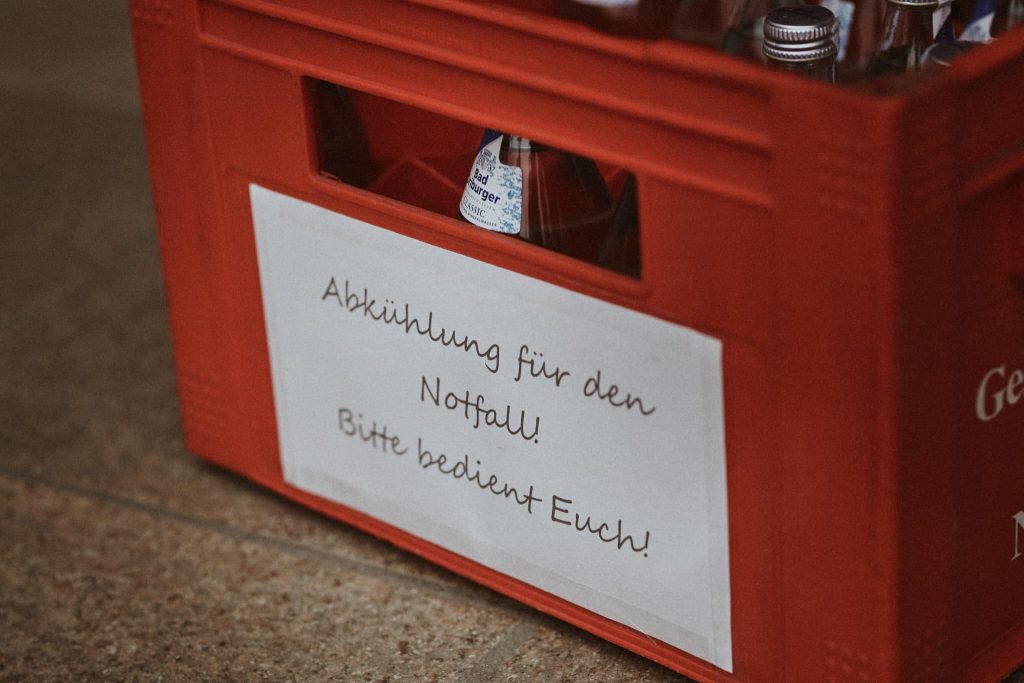 Bad
CLASSIC
Abkühlung für den
Notfall!
Bitte bedient Euch!